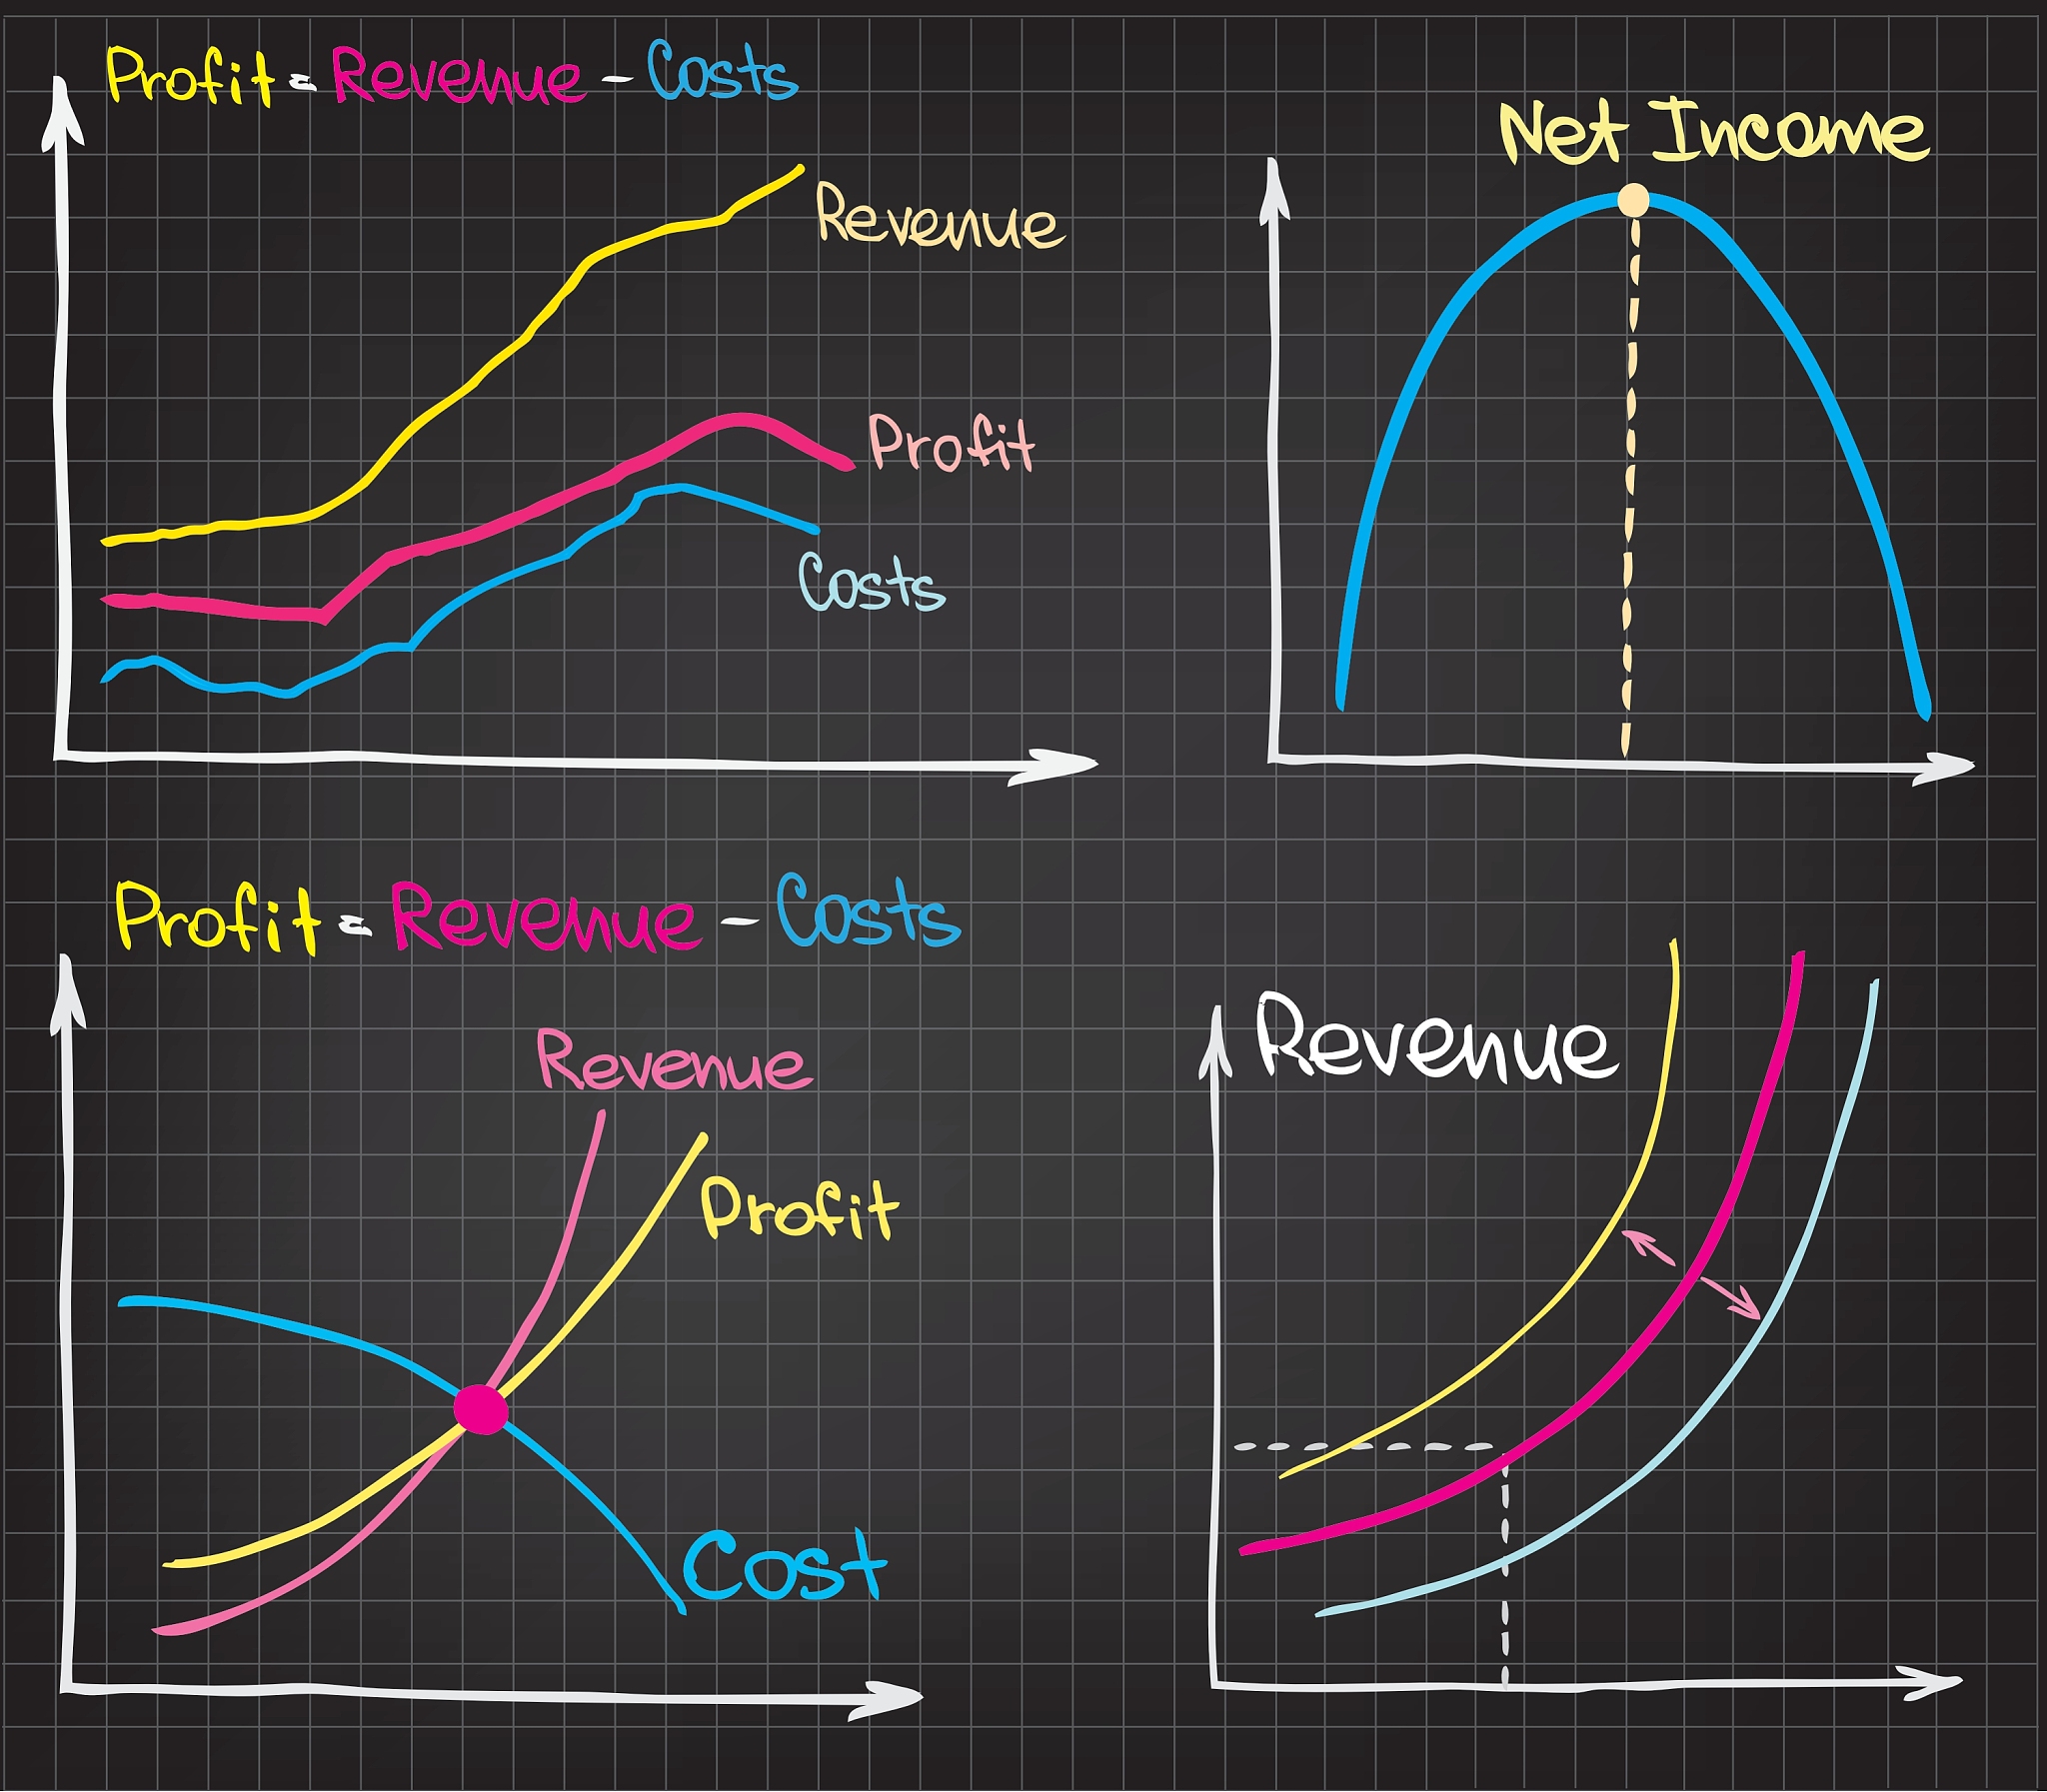 Profit = Revenue - Costs
Revenue
Profit
Costs
Net Income
Profit = Revenue - Costs
Revenue
Profit
Cost
Revenue